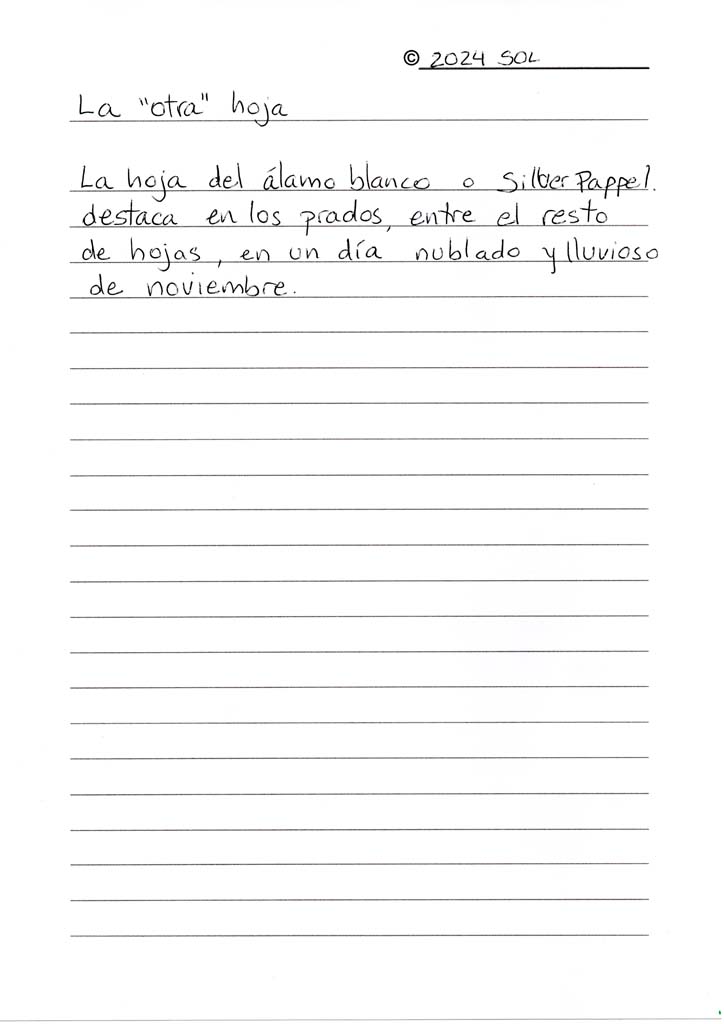 © 2024 SOL
La "otra" hoja
La hoja del álamo blanco o Silber Pappel.
destaca en los prados, entre el resto
de hojas, en un día nublado y lluvioso
de noviembre.